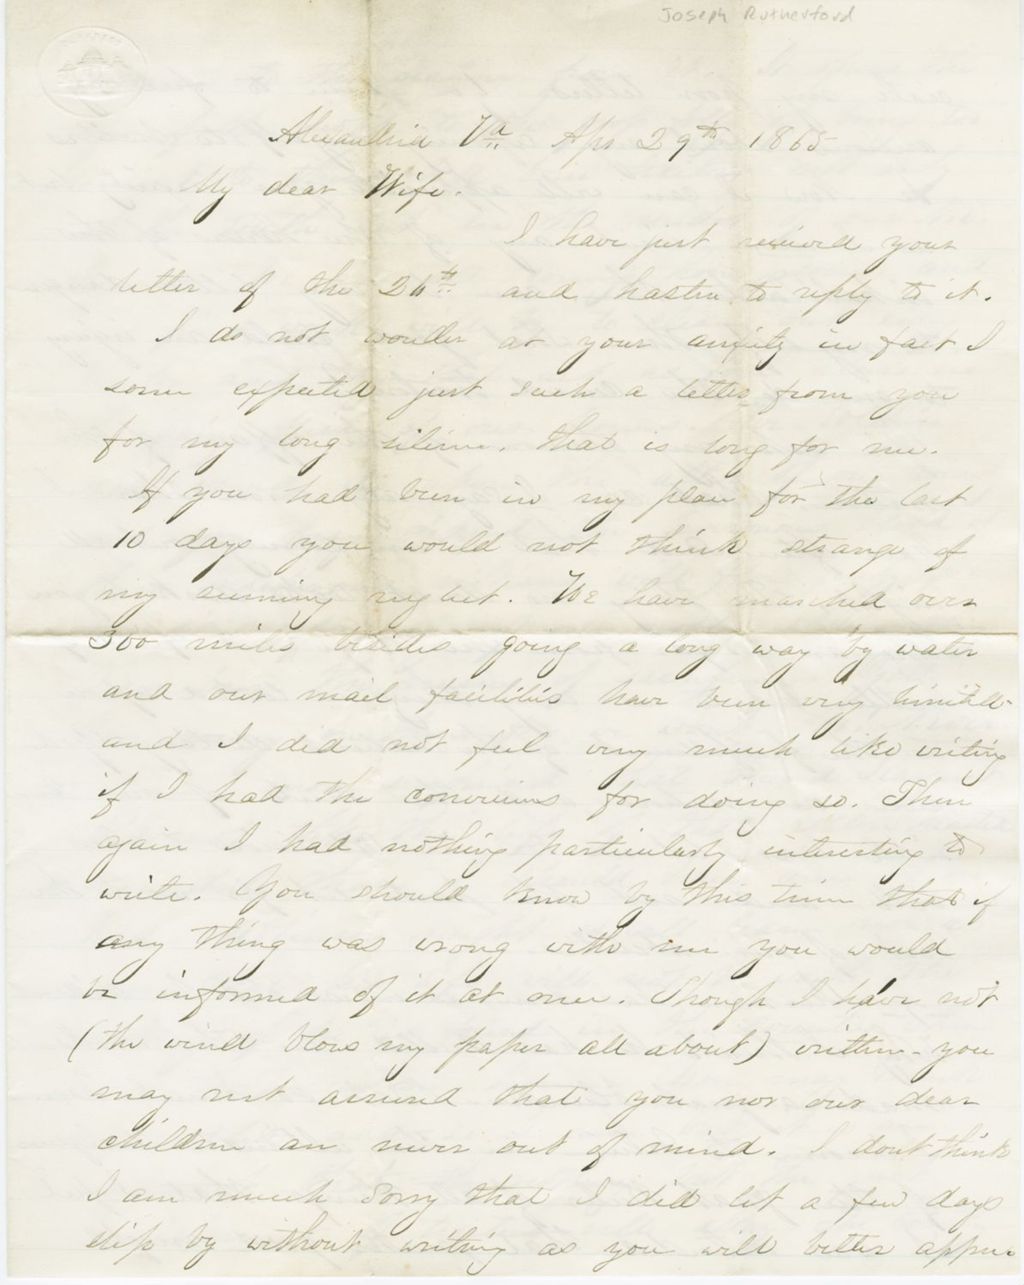 Joseph Rutherford
Alexandria Va Apr 29th 1865
My dear Wife.
I have just received your
letter of the 26th and hasten to reply to it.
I do not wonder at your anxiety in fact I
some expected just such a letter from you
for my long silence. that is long for me.
If you had been in my place for the last
10 days you would not think strange of
my seeming neglect. We have marched over
300 miles besides going a long way by water
and our mail facilities have been very limited
and I did not feel very much like writing
if I had the conveniens for doing so. Then
again I had nothing particularly interesting to
write. You should know by this time that if
any thing was wrong with me you would
be informed of it at once. Though I have not
(the wind blows my paper all about) written - you
may rest assured that you nor our dear
children are never out of mind. I dont think
I am much sorry that I did let a few days
slip by without writing as you will better appre-